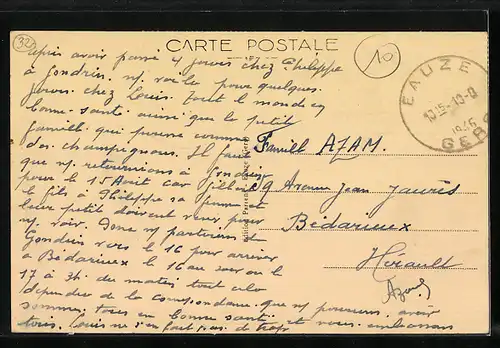 32
CARTE POSTALE
10
après avoir passé 4 jours chez Philippe
à Gondrin. ns voilà pour quelques
jours chez Louis. Tout le monde en
bonne santé ainsi que le petit
famille qui pousse comme
des champignons. Il faut
que ns retournions à Gondrin
pour le 15 Août car
le fils à Philippe sa femme et
leur petit doivent venir pour
ns voir. Donc ns partirons de
Gondrin vers le 16 pour arriver
à Bédarieux le 16 au soir ou le
17 à 3h. du matin tout cela
dépendra de la correspondance que ns pourrons avoir
sommes tous en bonne santé
Louis ne s'en fait pas de trop et nous embrassons
EAUZE
10 15 -10-8
1936
GERS
Famille AZAM.
29 Avenue Jean Jaurès
Bédarieux
Hérault